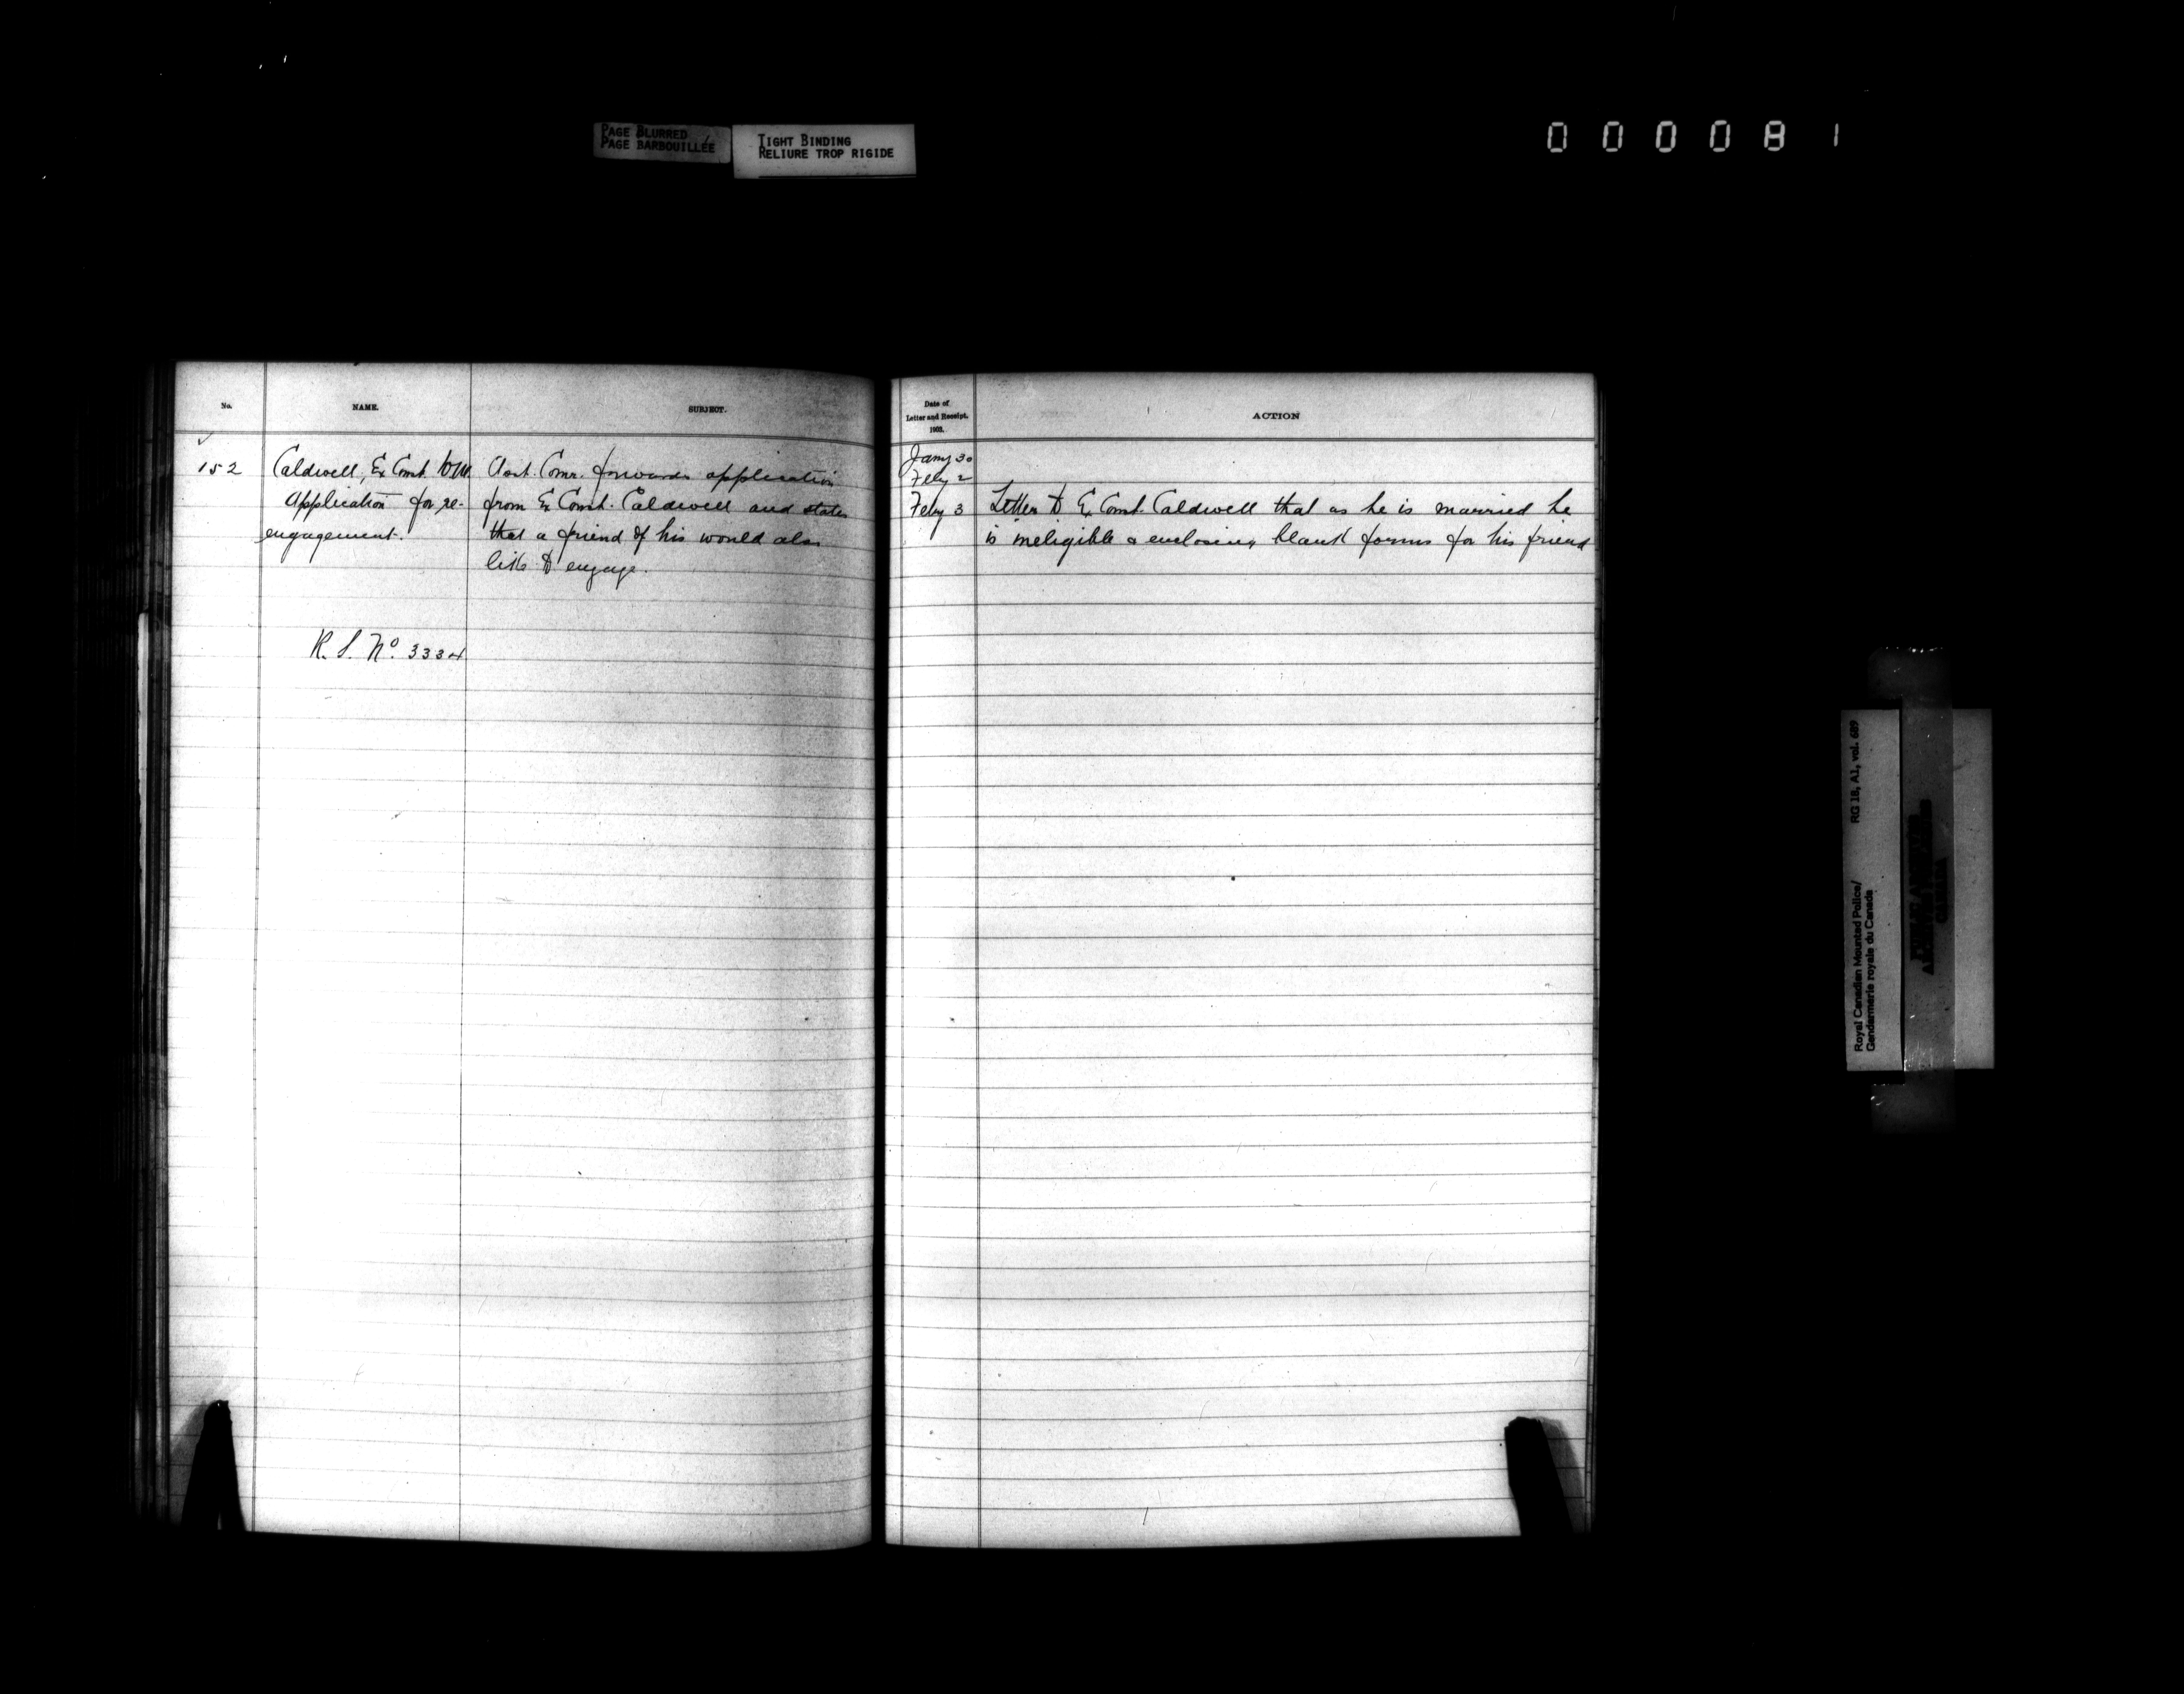 PAGE BLURRED
PAGE BARBOUILLÉE
TIGHT BINDING
RELIURE TROP RIGIDE
000081
No.
NAME.
SUBJECT.
152
Caldwell, Ex Const. W.M.
Application for re-
engagement.
R. S. No. 3334
Asst. Comr. forwards application
from Ex Const. Caldwell and states
that a friend of his would also
like to engage.
Date of
Letter and Receipt.
1903.
ACTION
Jany 30
Feby 2
Feby 3
Letter to Ex Const. Caldwell that as he is married he
is ineligible & enclosing blank forms for his friend
Royal Canadian Mounted Police/
Gendarmerie royale du Canada
RG 18, A1, vol. 689
PUBLIC ARCHIVES
ARCHIVES PUBLIQUES
CANADA